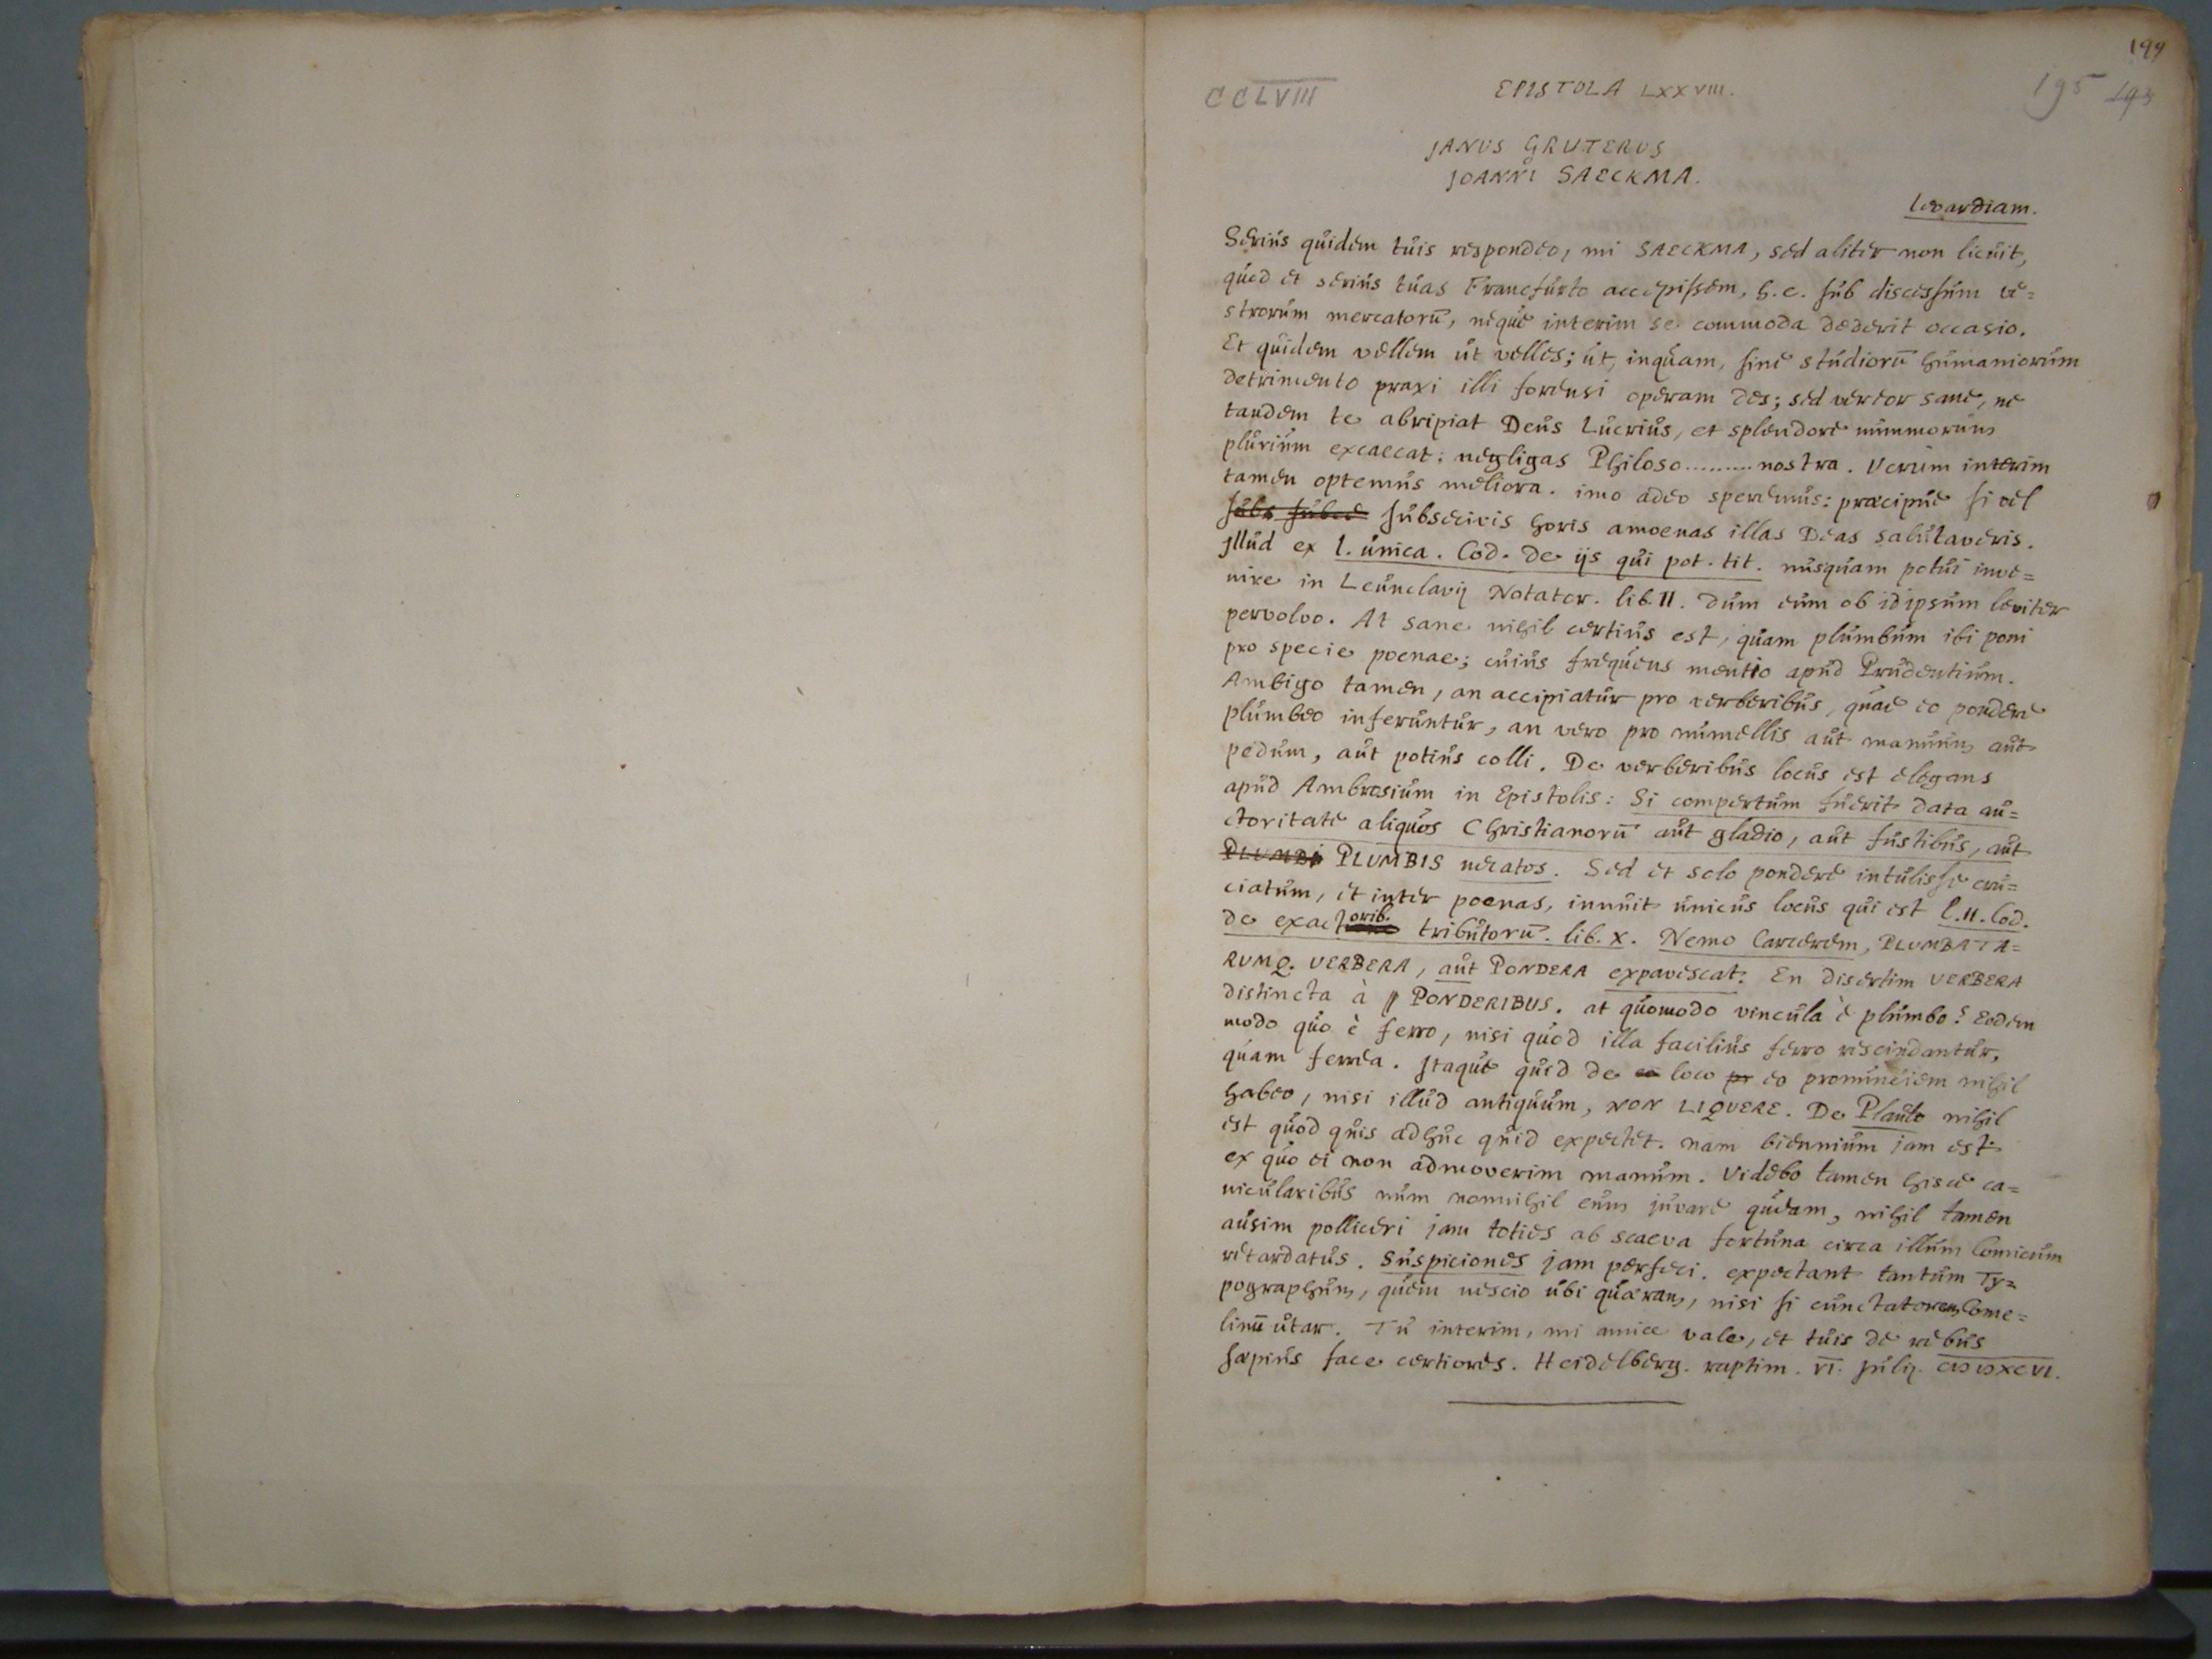 199
CCLVIII
EPISTOLA LXXVIII.
195 193
JANUS GRUTERUS
JOANNI SAECKMA.
Levardiam.
Seriùs quidem tuis respondeo, mi SAECKMA, sed aliter non licuit,
quod et seriùs tuas Francfurto accepissem, h.e. sub discessum ve=
strorum mercatorū, neque interim se commoda dederit occasio.
Et quidem vellem ut velles; ut, inquam, sine studiorū humaniorum
detrimento praxi illi forensi operam des; sed vereor sane, ne
tandem te abripiat Deus Lucrius, et splendore nummorum
plurium excaecat: negligas Philoso......... nostra. Verum interim
tamen optemus meliora. imo adeo speremus: praecipue si vel
subs subce subsecivis horis amoenas illas Deas salutaveris.
Jllud ex l. unica. Cod. de ijs qui pot. tit. nusquam potui inve=
nire in Leunclavij Notator. lib. II. dum eum ob id ipsum leviter
pervolvo. At sane nihil certius est, quam plumbum ibi poni
pro specie poenae; cuius frequens mentio apud Prudentium.
Ambigo tamen, an accipiatur pro verberibus, quae eo pondere
plumbeo inferuntur, an vero pro numellis aut manuum aut
pedum, aut potius colli. De verberibus locus est elegans
apud Ambrosium in Epistolis: Si compertum fuerit data au=
ctoritate aliquos Christianorū aut gladio, aut fustibus, aut
PLUMBI PLUMBIS necatos. Sed et solo pondere intulisse cru=
ciatum, et inter poenas, innuit unicus locus qui est l. II. Cod.
de exactorib. tributorū. lib. X. Nemo Carcerem, PLUMBATA=
RUMQ. VERBERA, aut PONDERA expavescat: En disertim VERBERA
distincta à PONDERIBUS. at quomodo vincula è plumbo? Eodem
modo quo è ferro, nisi quod illa facilius ferro rescindantur,
quam ferrea. Jtaque quid de eo loco pr eo pronunciem nihil
habeo, nisi illud antiquum, NON LIQUERE. De Plauto nihil
est quod quis adhuc quid expectet. nam biennium jam est
ex quo ei non admoverim manum. Videbo tamen hisce ca=
nicularibus num nonnihil eum juvare queam, nihil tamen
ausim polliceri jam toties ab scaeva fortuna circa illum Comicum
retardatus. Suspiciones jam perfeci. expectant tantum Ty=
pographum, quem nescio ubi quaeram, nisi si cunctatorem Come=
linū utar. Tu interim, mi amice vale, et tuis de rebus
saepius face certiores. Heidelberg. raptim. VI. Julij. CIƆ IƆ XCVI.